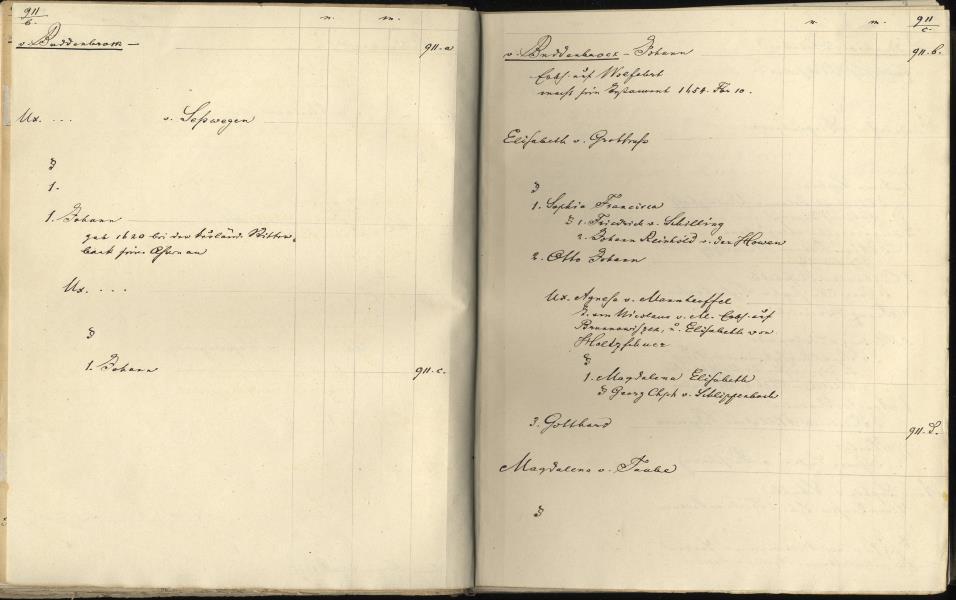 911
b.
n. m.
v. Buddenbrock — 911.a
Ux. ... v. Seswegen
1.
1. Johann
gab 1620 bei der kurländ. Ritter-
bank seine Ahnen an
Ux. ...
1. Johann 911.c.
n. m. 911
c.
v. Buddenbrock - Johann 911.b.
Erbh. auf Wolfahrt
macht sein Testament 1654. Fbr 10.
Elisabeth v. Grotthuss
1. Sophia Francisca
1. Friedrich v. Schilling
2. Johann Reinhold v. der Howen
2. Otto Johann
Ux. Agnesa v. Mannteuffel
T. von Nicolaus v. M. Erbh. auf
u. Elisabeth von
Holtzschuer
1. Magdalena Elisabeth
Georg Chph v. Schlippenbach
3. Gotthard 911.d.
Magdalena v. Taube